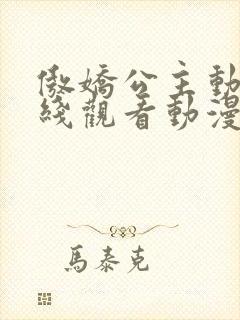 傲嬌公主動
綫觀看動漫
馬泰克